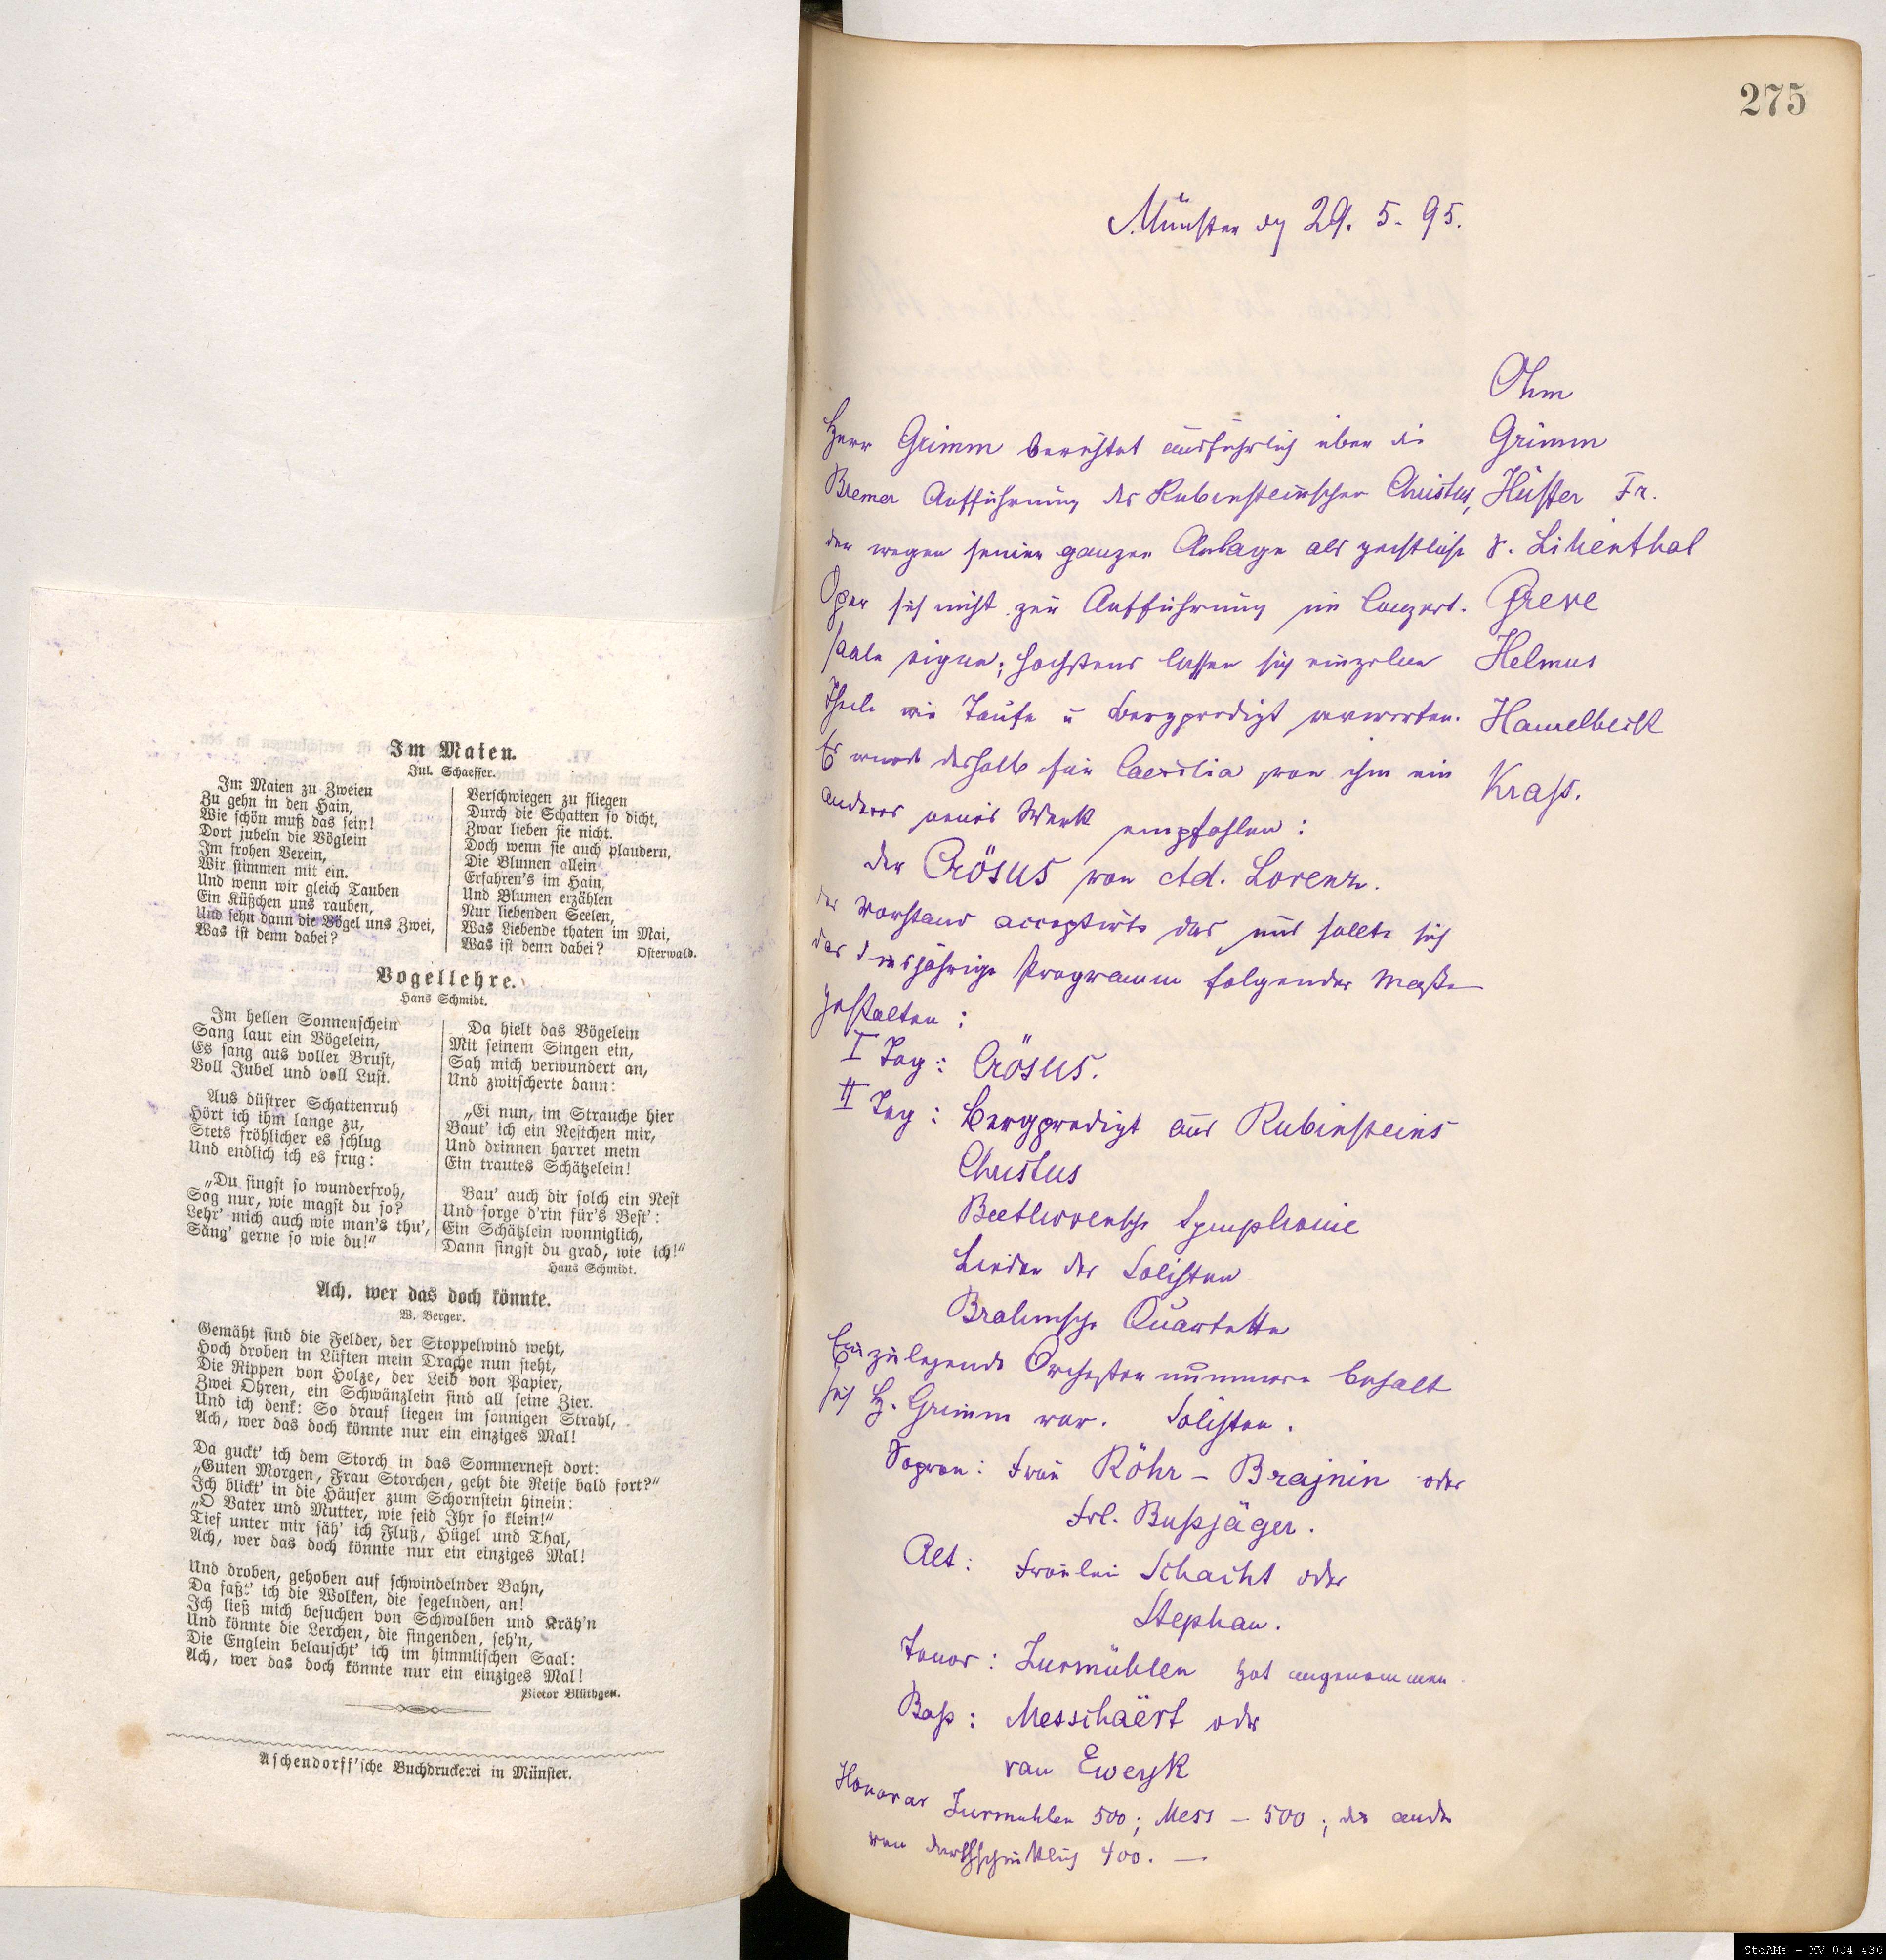 Im Maien.
Jul. Schaeffer.
Im Maien zu Zweien
Zu gehn in den Hain,
Wie schön muß das sein!
Dort jubeln die Vöglein
Im frohen Verein,
Wir stimmen mit ein.
Und wenn wir gleich Tauben
Ein Küßchen uns rauben,
Und sehn dann die Vögel uns Zwei,
Was ist denn dabei?
Verschwiegen zu fliegen
Durch die Schatten so dicht,
Zwar lieben sie nicht.
Doch wenn sie auch plaudern,
Die Blumen allein
Erfahren's im Hain,
Und Blumen erzählen
Nur liebenden Seelen,
Was Liebende thaten im Mai,
Was ist denn dabei?
Osterwald.
Vogellehre.
Hans Schmidt.
Im hellen Sonnenschein
Sang laut ein Vögelein,
Es sang aus voller Brust,
Voll Jubel und voll Lust.
Aus düstrer Schattenruh
Hört ich ihm lange zu,
Stets fröhlicher es schlug
Und endlich ich es frug:
„Du singst so wunderfroh,
Sag nur, wie magst du so?
Lehr' mich auch wie man's thu',
Säng' gerne so wie du!“
Da hielt das Vögelein
Mit seinem Singen ein,
Sah mich verwundert an,
Und zwitscherte dann:
„Ei nun, im Strauche hier
Baut' ich ein Nestchen mir,
Und drinnen harret mein
Ein trautes Schätzelein!
Bau' auch dir solch ein Nest
Und sorge d'rin für's Best':
Ein Schätzlein wonniglich,
Dann singst du grad, wie ich!“
Hans Schmidt.
Ach, wer das doch könnte.
W. Berger.
Gemäht sind die Felder, der Stoppelwind weht,
Hoch droben in Lüften mein Drache nun steht,
Die Rippen von Holze, der Leib von Papier,
Zwei Ohren, ein Schwänzlein sind all seine Zier.
Und ich denk: So drauf liegen im sonnigen Strahl,
Ach, wer das doch könnte nur ein einziges Mal!
Da guckt' ich dem Storch in das Sommernest dort:
„Guten Morgen, Frau Storchen, geht die Reise bald fort?“
Ich blickt' in die Häuser zum Schornstein hinein:
„O Vater und Mutter, wie seid Ihr so klein!“
Tief unter mir säh' ich Fluß, Hügel und Thal,
Ach, wer das doch könnte nur ein einziges Mal!
Und droben, gehoben auf schwindelnder Bahn,
Da faßt' ich die Wolken, die segelnden, an!
Ich ließ mich besuchen von Schwalben und Kräh'n
Und könnte die Lerchen, die singenden, seh'n,
Die Englein belauscht' ich im himmlischen Saal:
Ach, wer das doch könnte nur ein einziges Mal!
Victor Blüthgen.
Aschendorff'sche Buchdruckerei in Münster.
275
Münster d 29. 5. 95.
Herr Grimm berichtet ausführlich über die
Bremer Aufführung des Rubinsteinschen Christus,
der wegen seiner ganzen Anlage als geistliche
Oper sich nicht zur Aufführung im Conzert-
saale eigne; höchstens lassen sich einzelne
Theile wie Taufe u Bergpredigt verwerten.
Es wurde deshalb für Caecilia von ihm ein
anderes neues Werk empfohlen:
der Crösus von Ad. Lorenz.
der Vorstand acceptirte das und sollte sich
das diesjährige Programm folgender Maße
gestalten:
I Tag: Crösus.
II Tag: Bergpredigt aus Rubinsteins
Christus
Beethovensche Symphonie
Lieder der Solisten
Brahmsche Quartette
Einzulegende Orchesternummern behält
sich H. Grimm vor. Solisten.
Sopran: Frau Röhr-Brajnin oder
Frl. Bußjäger.
Alt: Fräulein Schacht oder
Stephan.
Tenor: Zurmühlen hat angenommen
Baß: Messchaërt oder
van Eweyk
Honorar Zurmuhlen 500; Mess - 500; die ander
durchschnittlich 400. —
Ohm
Grimm
Hüffer Fr.
v. Lilienthal
Greve
Helmus
Hamelbeck
Kraß.
StdAMs - MV_004_436